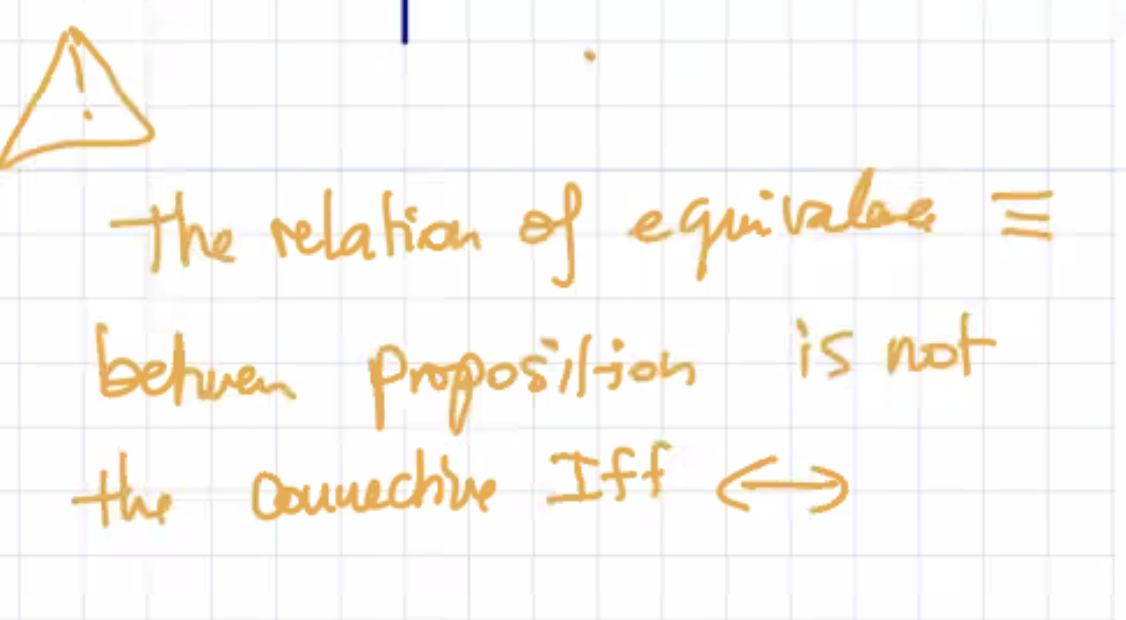 The relation of equivalence ≡
between proposition is not
the connective Iff ↔